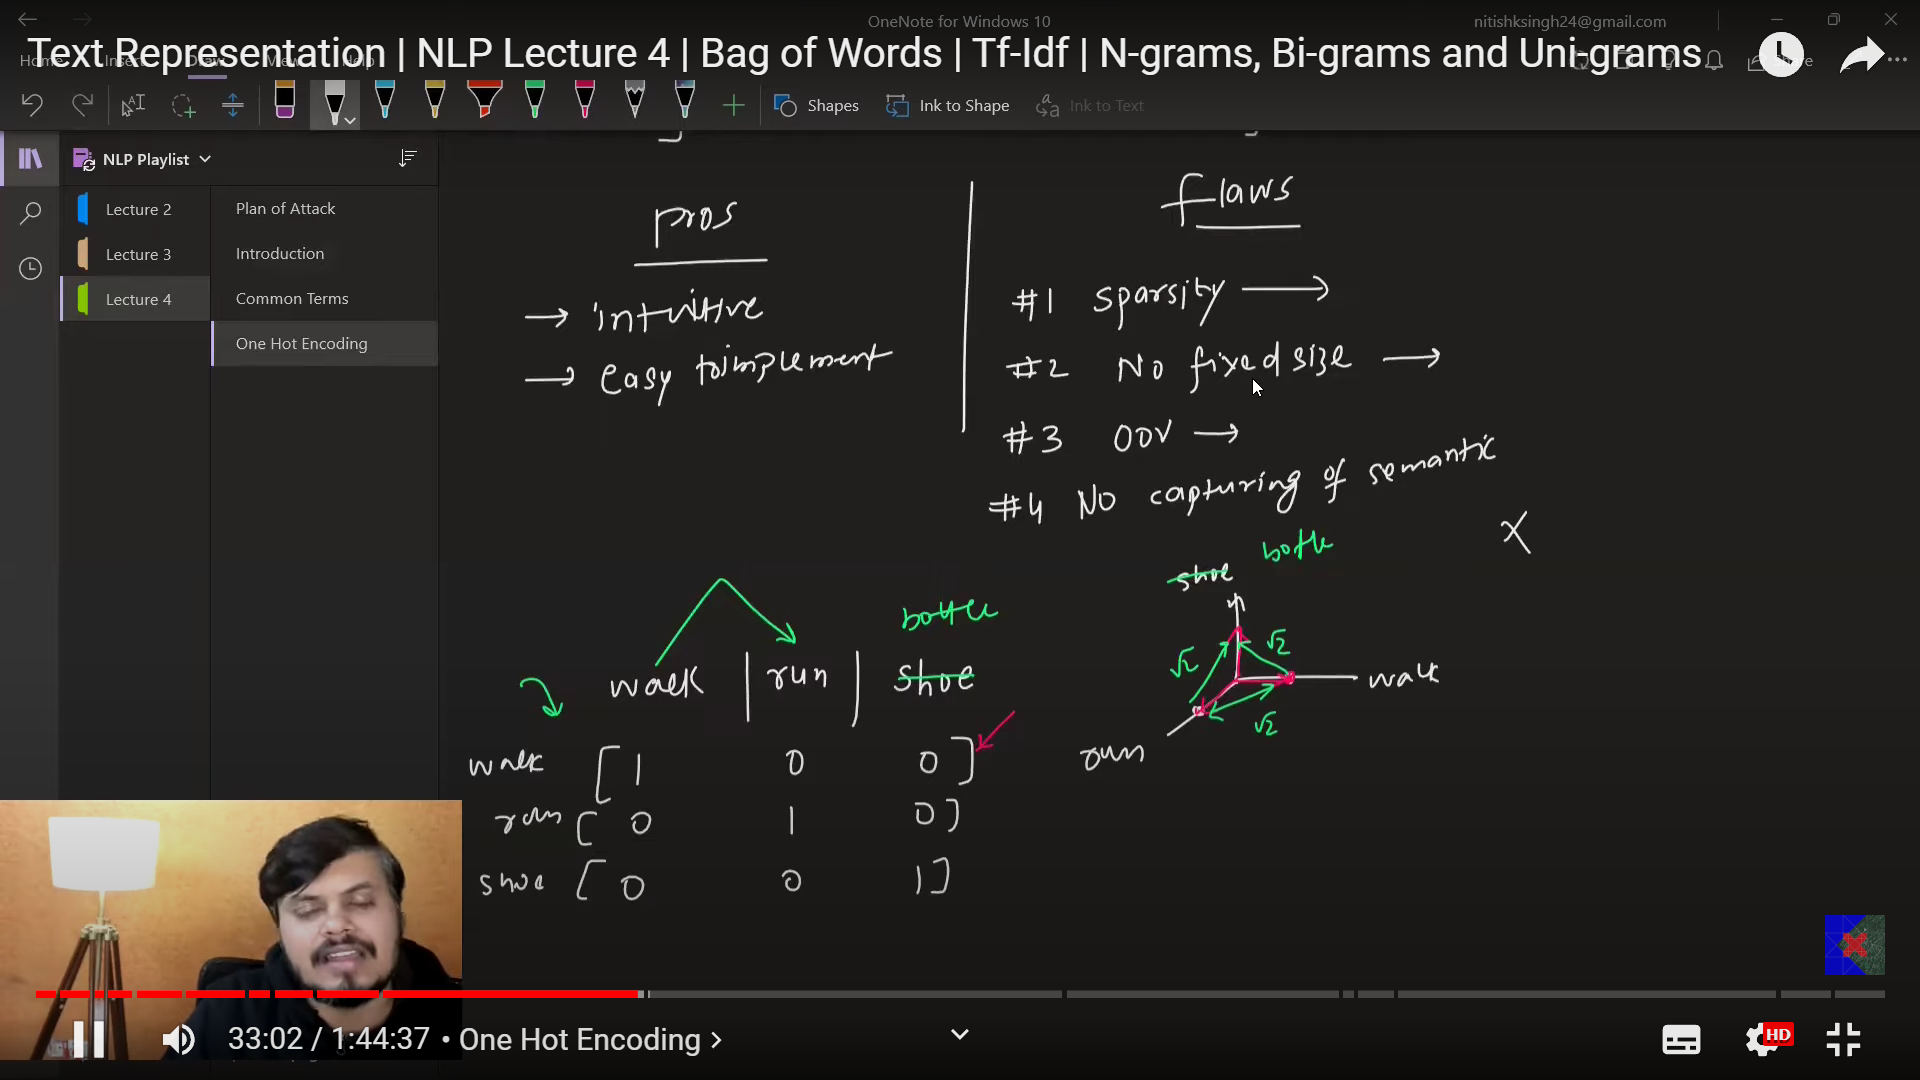 OneNote for Windows 10
nitishksingh24@gmail.com
Text Representation | NLP Lecture 4 | Bag of Words | Tf-Idf | N-grams, Bi-grams and Uni-grams
Home Insert Draw View Help
Share
Shapes
Ink to Shape
Ink to Text
NLP Playlist
Lecture 2
Lecture 3
Lecture 4
Plan of Attack
Introduction
Common Terms
One Hot Encoding
pros
→ intuitive
→ easy to implement
flaws
#1 sparsity →
#2 No fixed size →
#3 OOV →
#4 No capturing of semantic
X
bottle
walk | run | shoe
walk [1 0 0]
run [0 1 0]
shoe [0 0 1]
shoe bottle
√2 √2
walk
√2
run
33:02 / 1:44:37 • One Hot Encoding >
HD